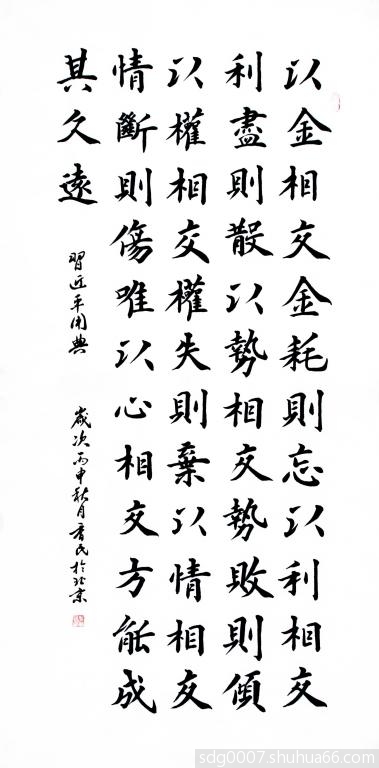 以金相交金耗則忘以利相交
利盡則散以勢相交勢敗則傾
以權相交權失則棄以情相交
情斷則傷唯以心相交方能成
其久遠
習近平用典
歲次丙申秋月民於北京
sdg0007.shuhua66.com